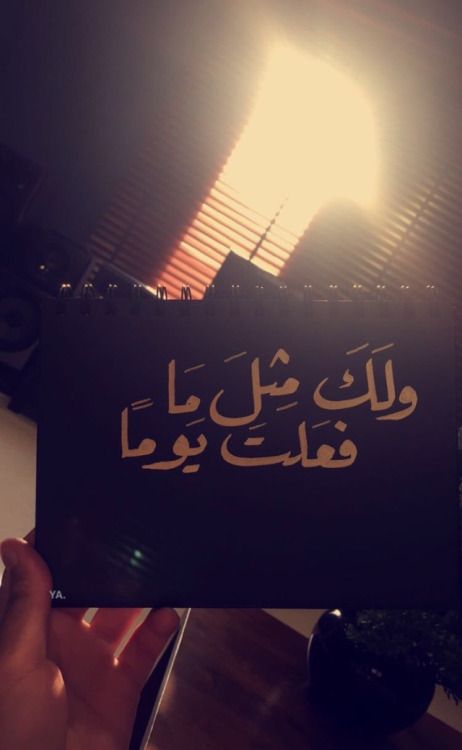 ولَكَ مِثلَ مَا
فعَلتَ يومًا
YA.